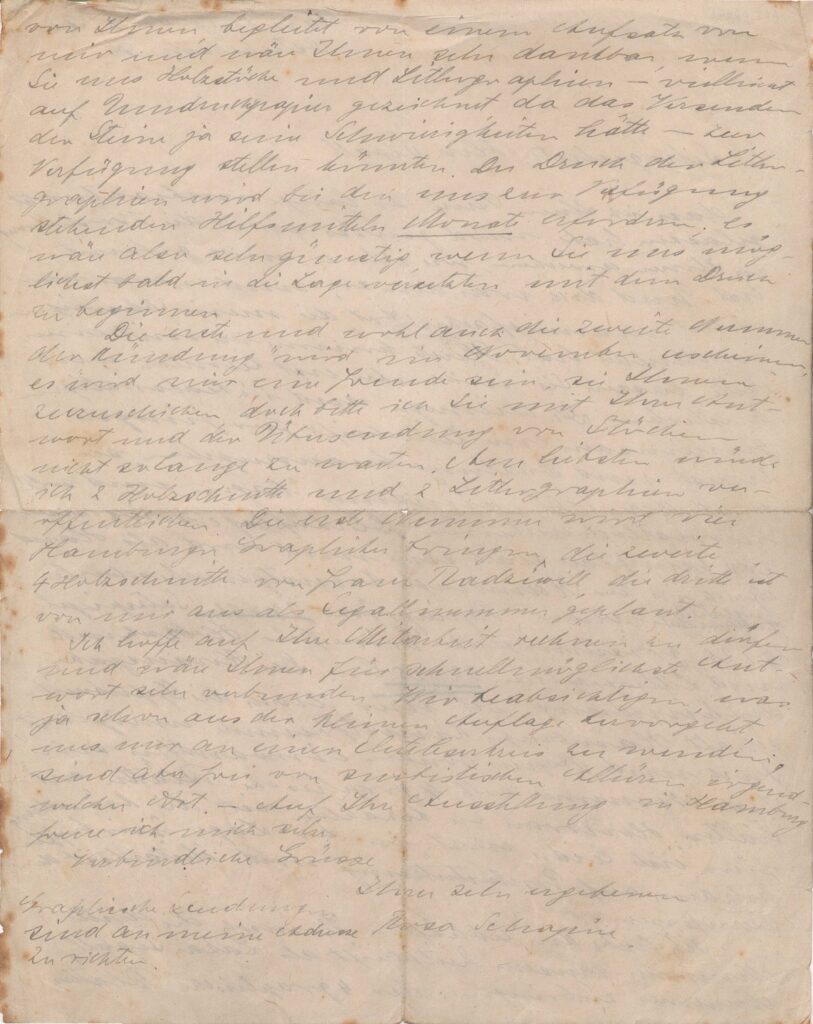 von Ihnen begleitet von einem Aufsatz von
mir und wäre Ihnen sehr dankbar, wenn
Sie uns Holzstöcke und Lithographien – vielleicht
auf Umdruckpapier gezeichnet da das Versenden
der Steine ja seine Schwierigkeiten hätte – zur
Verfügung stellen könnten. Der Druck der Litho-
graphien wird bei den uns zur Verfügung
stehenden Hilfsmitteln Monate erfordern, es
wäre also sehr günstig wenn Sie uns mög-
lichst bald in die Lage versetzten mit dem Druck
zu beginnen.
Die erste und wohl auch die zweite Nummer
der Kündung" wird im November erscheinen,
es wird mir eine Freude sein, sie Ihnen
zuzuschicken doch bitte ich Sie mit Ihrer Ant-
wort und der Übersendung von Stöcken
nicht solange zu warten. Am liebsten würde
ich 2 Holzschnitte und 2 Lithographien ver-
öffentlichen. Die erste Nummer wird vier
Hamburger Graphiker bringen, die zweite
4 Holzschnitte von Franz Radziwill die dritte ist
von mir aus als Segallnummer geplant.
Ich hoffe auf Ihre Mitarbeit rechnen zu dürfen
und wäre Ihnen für schnellmöglichste Ant-
wort sehr verbunden. Wir beabsichtigen, was
ja schon aus der kleinen Auflage hervorgeht,
uns nur an einen zu wenden,
sind aber frei von Allüren irgend-
welcher Art. – Auf Ihre Ausstellung in Hamburg
freue ich mich sehr
Verbindliche Grüsse
Ihre sehr ergebene
Rosa Schapire.
Graphische Sendungen
sind an meine Adresse
zu richten.